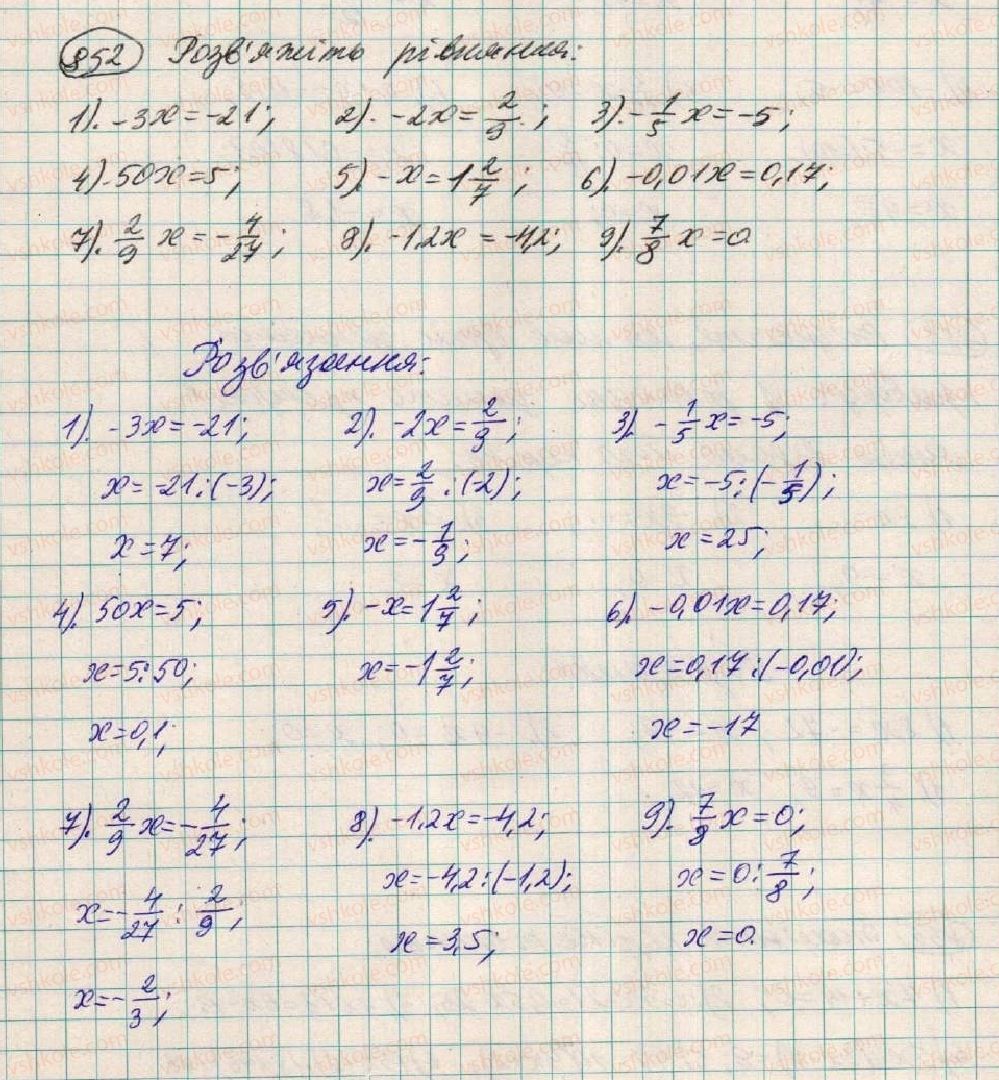 852 Розв'яжіть рівняння:
1). -3x = -21; 2). -2x = 2/9; 3). -1/5 x = -5;
4). 50x = 5; 5). -x = 1 2/7; 6). -0,01x = 0,17;
7). 2/9 x = -4/27; 8). -1,2x = -4,2; 9). 7/8 x = 0.
Розв'язання:
1). -3x = -21; 2). -2x = 2/9; 3). -1/5 x = -5;
x = -21 : (-3); x = 2/9 : (-2); x = -5 : (-1/5);
x = 7; x = -1/9; x = 25;
4). 50x = 5; 5). -x = 1 2/7; 6). -0,01x = 0,17;
x = 5 : 50; x = -1 2/7; x = 0,17 : (-0,01);
x = 0,1; x = -17
7). 2/9 x = -4/27; 8). -1,2x = -4,2; 9). 7/8 x = 0;
x = -4/27 : 2/9; x = -4,2 : (-1,2); x = 0 : 7/8;
x = -2/3; x = 3,5; x = 0.
vshkole.com